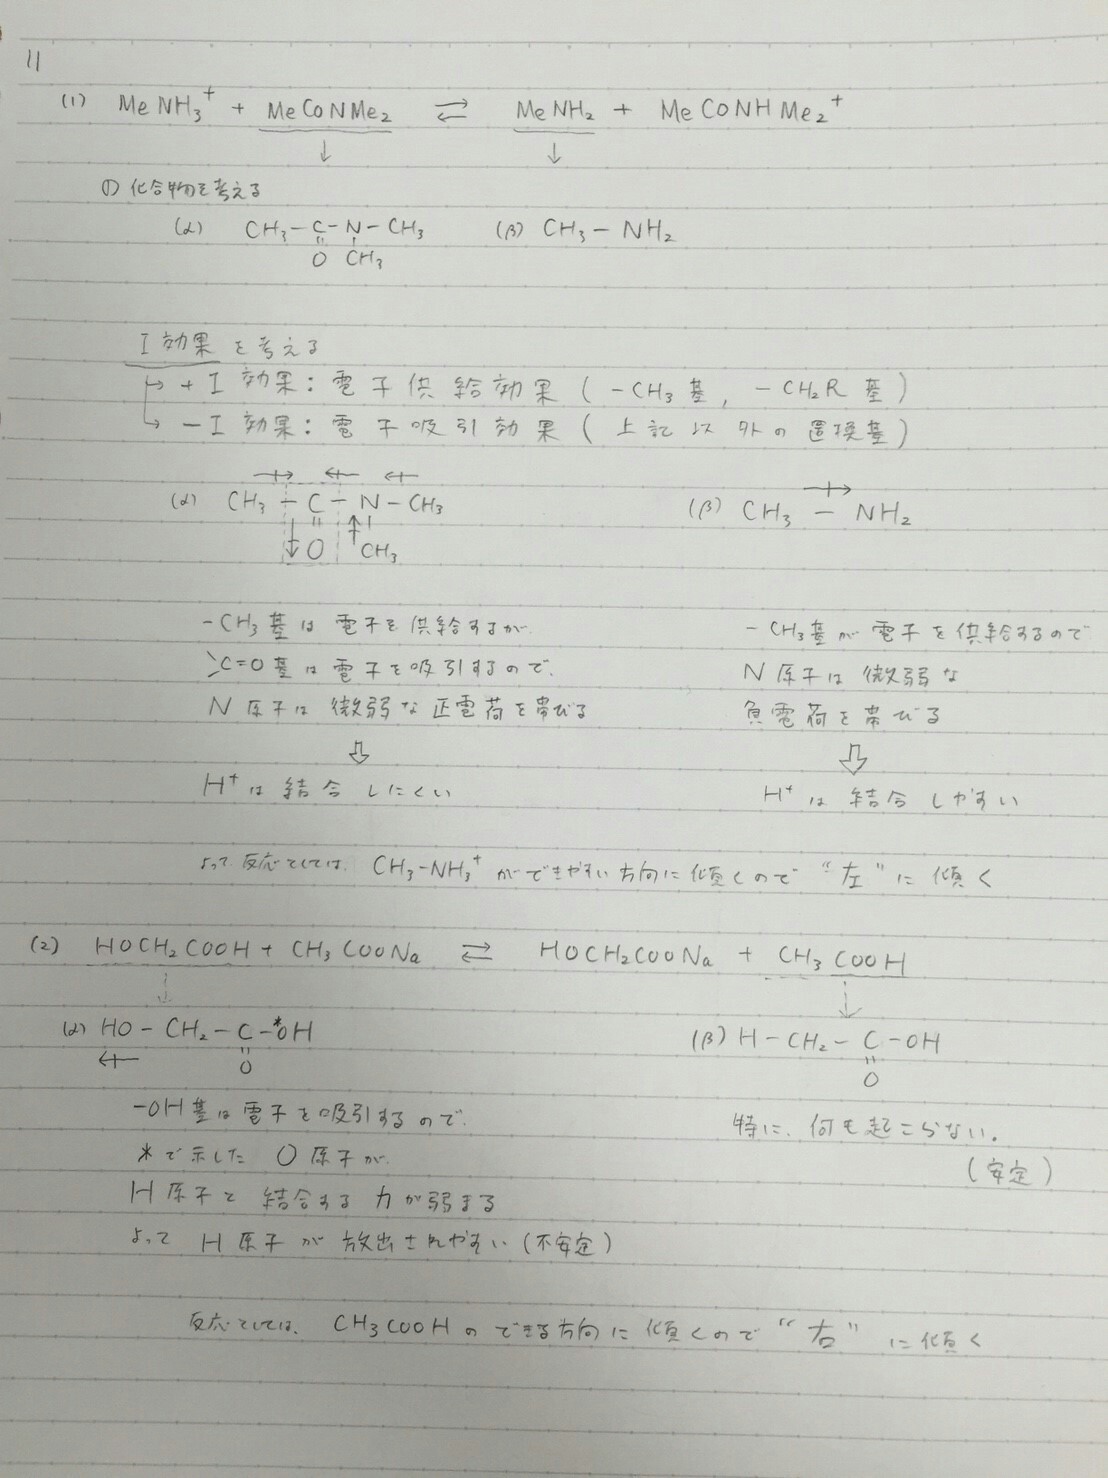 11
(1) MeNH3+ + MeCoNMe2 ⇄ MeNH2 + MeCONHMe2+
↓ ↓
の化合物を考える
(α) CH3-C-N-CH3 (β) CH3-NH2
O CH3
I効果を考える
↳ +I 効果：電子供給効果 (-CH3基, -CH2R基)
↳ -I 効果：電子吸引効果 (上記以外の置換基)
(α) CH3-C-N-CH3 (β) CH3-NH2
O CH3
-CH3基は電子を供給するが、 -CH3基が電子を供給するので
>C=O基は電子を吸引するので、 N原子は微弱な
N原子は微弱な正電荷を帯びる 負電荷を帯びる
⇩ ⇩
H+は結合しにくい H+は結合しやすい
よって反応としては、CH3-NH3+ができやすい方向に傾くので "左" に傾く
(2) HOCH2COOH + CH3COONa ⇄ HOCH2COONa + CH3COOH
↓ ↓
(α) HO-CH2-C-*OH (β) H-CH2-C-OH
O O
-OH基は電子を吸引するので、 特に、何も起こらない。
*で示した O原子が、 (安定)
H原子と結合する力が弱まる
よって H原子が放出されやすい(不安定)
反応としては、CH3COOHのできる方向に傾くので "右" に傾く